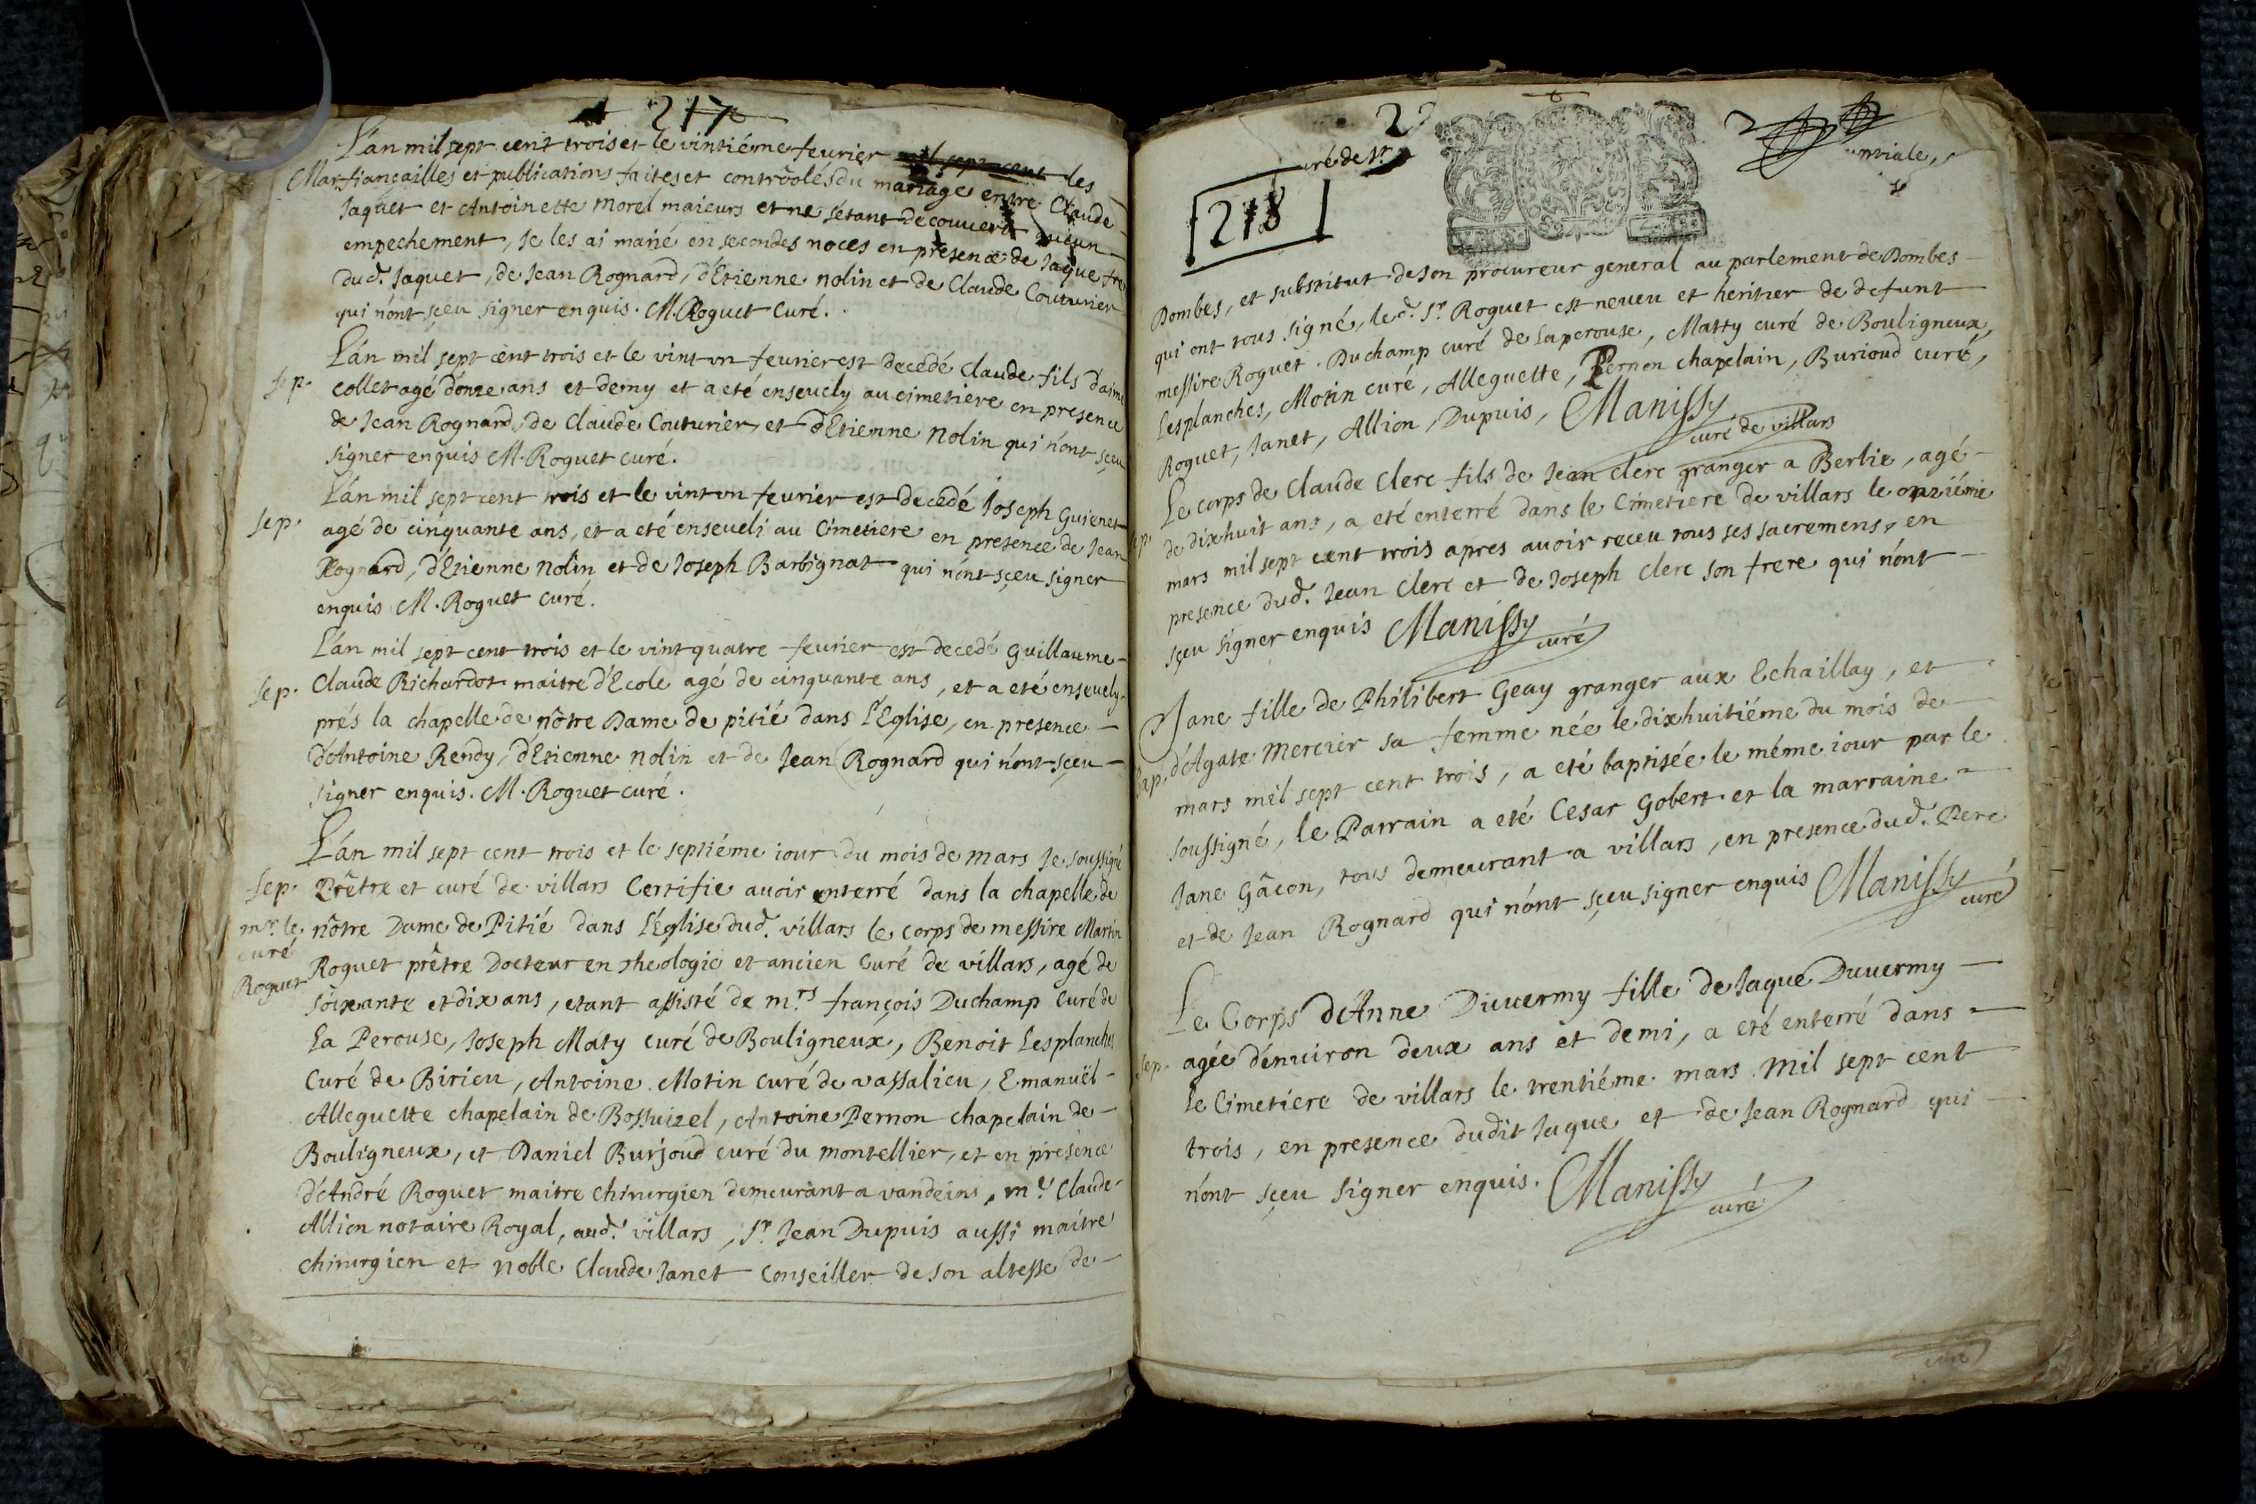 217
L'an mil sept cent trois et le vintiéme feurier mil sept cent les
Mar. fiançailles et publications faites et controolés du mariage entre Claude
Jaquet et Antoinette Morel maieurs et ne s'étant decouvert aucun
empechement, Je les ai marié en secondes noces en presence de Jaque fre
dud. Jaquet, de Jean Rognard, d'Etienne nolin et de Claude Couturier
qui n'ont sçeu signer enquis. M. Roguet Curé.
L'an mil sept cent trois et le vint vn feurier est decedé Claude fils d'aimé
sep. collet agé d'onze ans et demy et a eté enseuely au cimetiere en presence
de Jean Rognard, de Claude Couturier, et d'Etienne Nolin qui n'ont sçeu
signer enquis M. Roguet curé.
L'an mil sept cent trois et le vint vn feurier est decedé Joseph Guienet
sep. agé de cinquante ans, et a eté enseueli au Cimetiere en presence de Jean
Rognard, d'Etienne Nolin et de Joseph Barbignat qui n'ont sçeu signer
enquis M. Roguet curé.
L'an mil sept cent trois et le vint quatre feurier est decedé Guillaume
sep. Claude Richardot maitre d'Ecole agé de cinquante ans, et a eté enseuely
prés la chapelle de nôtre Dame de pitié dans l'Eglise, en presence
d'Antoine Rendy, d'Etienne Nolin et de Jean Rognard qui n'ont sçeu
signer enquis. M. Roguet curé.
L'an mil sept cent trois et le septiéme iour du mois de mars Je soussigné
sep. Prêtre et curé de villars Certifie auoir enterré dans la chapelle de
mr. le nôtre Dame de Pitié dans l'Eglise dud. villars le corps de messire Martin
curé
Roguet Roguet prêtre Docteur en theologie et ancien Curé de villars, agé de
soixante et dix ans, etant assisté de mrs françois Duchamp Curé de
La Perouse, Joseph Maty curé de Bouligneux, Benoit Lesplanches
Curé de Birieu, Antoine Motin curé de vassalieu, Emanuël
Alleguette chapelain de Bossuizel, Antoine Pernon chapelain de
Bouligneux, et Daniel Burjoud curé du montellier, et en presence
d'André Roguet maitre chirurgien demeurant a vandeins, me. Claude
Allion notaire Royal, aud. villars, Sr. Jean Dupuis aussi maitre
chirurgien et noble Claude Janet Conseiller de son altesse de
218
Dombes, et substitut de son procureur general au parlement de Dombes
qui ont tous signé, led. Sr. Roguet est neueu et heritier de defunt
messire Roguet. Duchamp curé de Laperouse, Matty curé de Bouligneux,
Lesplanches, Motin curé, Alleguette, Pernon chapelain, Burioud curé,
Roguet, Janet, Allion, Dupuis, Manissy
curé de villars
Le corps de Claude Clerc fils de Jean clerc granger a Berlie, agé
sep. de dixhuit ans, a eté enterré dans le Cimetiere de villars le onziéme
mars mil sept cent trois apres auoir receu tous ses sacremens, en
presence dud. Jean Clerc et de Joseph Clerc son frere qui n'ont
sçeu signer enquis Manissy
curé
Jane fille de Philibert Geay granger aux Echaillay, et
Bap. d'Agate Mercier sa femme née le dixhuitiéme du mois de
mars mil sept cent trois, a eté baptisée le méme iour par le
soussigné, le Parrain a eté Cesar Gobert et la marraine
Jane Gâcon, tous demeurant a villars, en presence dud. Pere
et de Jean Rognard qui n'ont sçeu signer enquis Manissy
curé
Le Corps d'Anne Duuermy fille de Jaque Duuermy
sep. agée d'enuiron deux ans et demi, a eté enterré dans
le Cimetiere de villars le trentiéme mars mil sept cent
trois, en presence dudit Jaque et de Jean Rognard qui
n'ont sçeu signer enquis. Manissy
curé